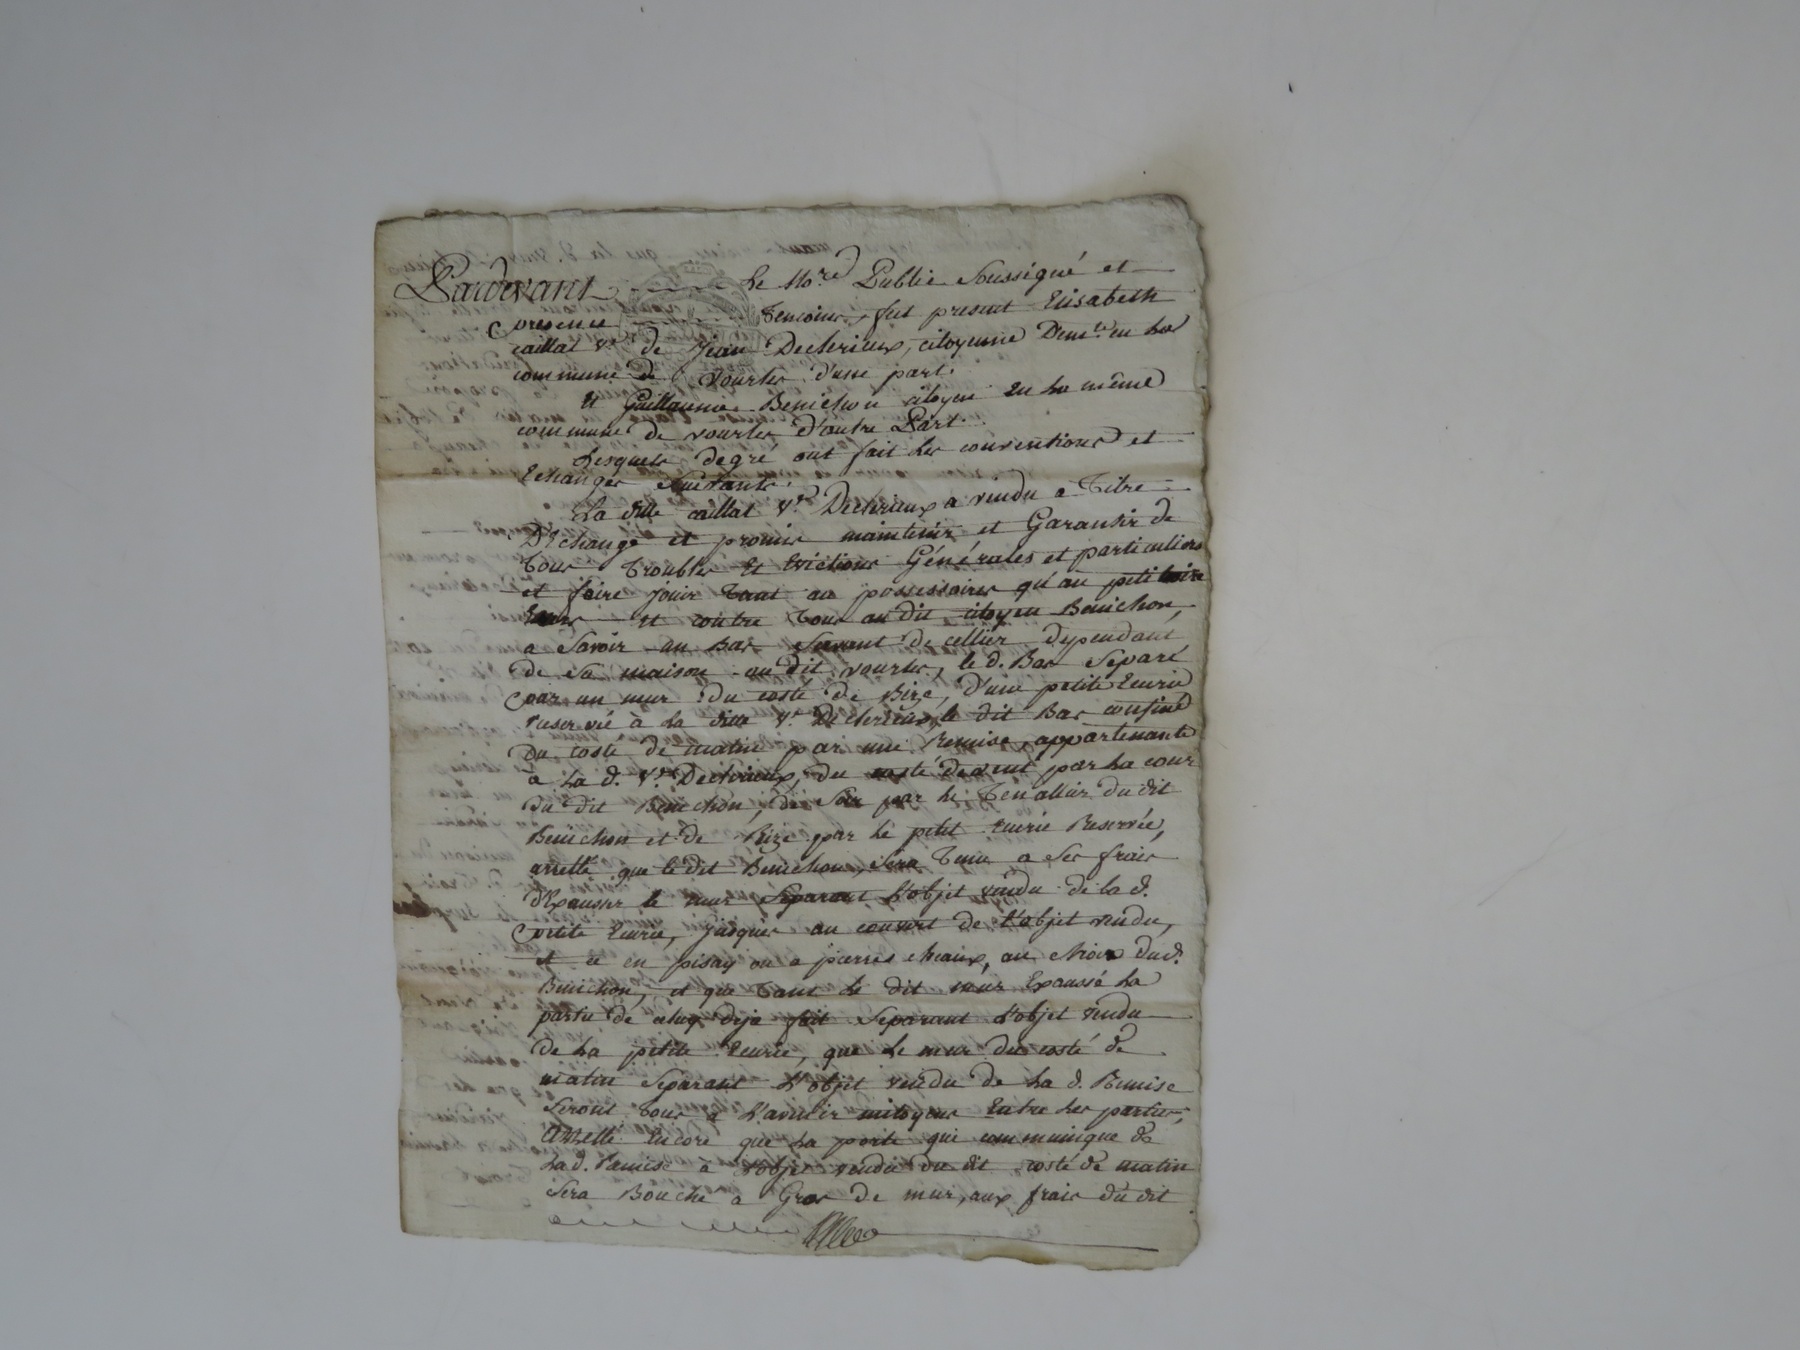 Pardevant Le No.re Public Soussigné et
presence Temoins, fut present Elisabeth
caillat v.e de Jean Decherieux, citoyenne Dem.te en La
commune de Vourles d'une part.
Et Guillaume Benichon citoyen En La même
commune de vourles d'autre Part.
Lesquels degré ont fait Les conventions et
Echanges Suivants.
La ditte caillat V.e Decherieux a vendu a Titre
D'Echange et promis maintenir et Garantir de
Tous Troubles Et Evictions Générales et particulieres
et faire jouir Tant au possessoires qu'au petitoire
Envers Et contre Tous au dit citoyen Benichon,
a Savoir un Bas Servant de cellier dependant
de Sa maison au dit vourles, le d. Bas Separé
par un mur du costé de Bize, D'une petite Ecurie
reservée à La ditte V.e Decherieux, le dit Bas confiné
Du costé de matin par une Remise appartenante
à La d. V.e Decherieux, du costé de vent par La cour
du dit Benichon, de Soir par le Tenallier du dit
Benichon et de Bize par le petit Ecurie Reservée,
arretté que le dit Benichon, Sera Tenu a Ses frais
d'Exausser le mur Separant L'objet vendu de la d.
petite Ecurie, jusques au couvert de L'objet vendu,
et ce en pisay ou a pierres chaux, au choix du d.
Benichon, et que Tant le dit mur Exaussé La
partie de celuy déja fait Separant L'objet vendu
de La petite Ecurie, que Le mur du costé de
matin Separant L'objet vendu de La d. Remise
Seront Tous à L'avenir mitoyens Entre Les parties,
Arretté Encore que La porte qui communique de
La d. Remise à L'objet vendu du dit costé de matin
Sera Bouché a Gros de mur, aux frais du dit